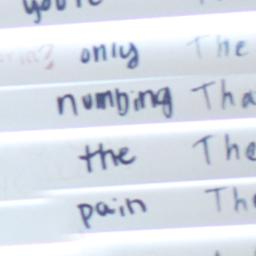 you're
only The
numbing Tha
the The
pain Th